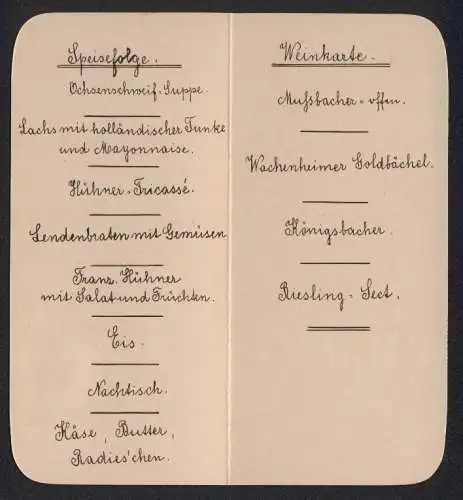 Speisefolge.
Ochsenschweif-Suppe.
Lachs mit holländischer Tunke
und Mayonnaise.
Hühner-Fricassé.
Lendenbraten mit Gemüsen
Franz. Hühner
mit Salat und Früchten.
Eis.
Nachtisch.
Käse, Butter,
Radies'chen.
Weinkarte.
Mußbacher-offen.
Wachenheimer Goldbächel.
Königsbacher.
Riesling-Sect.